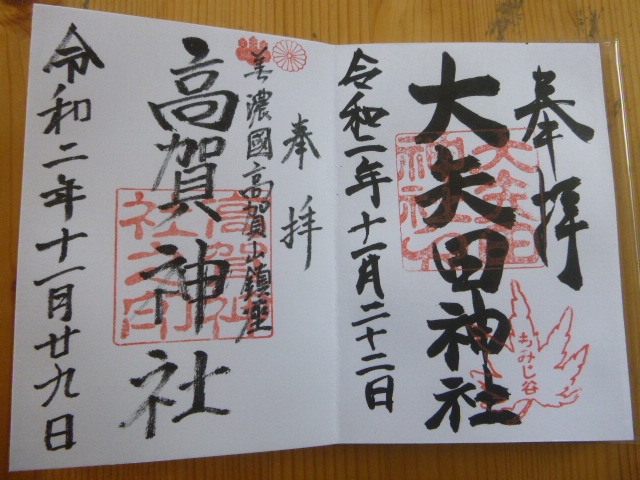 奉拝
大矢田神社
大矢田神社印
もみじ谷
令和二年十一月二十二日
奉拝
美濃國高賀山鎮座
高賀神社
高賀神社之印
令和二年十一月廿九日